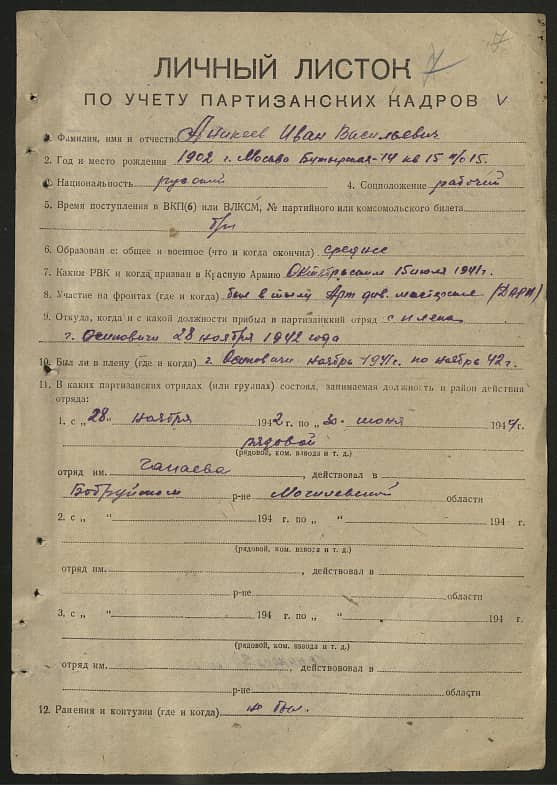 7
ЛИЧНЫЙ ЛИСТОК 7
ПО УЧЕТУ ПАРТИЗАНСКИХ КАДРОВ V
1. Фамилия, имя и отчество Аникеев Иван Васильевич
2. Год и место рождения 1902 г. Москва Бутырская-14 кв 15
3. Национальность русский 4. Соцположение рабочий
5. Время поступления в ВКП(б) или ВЛКСМ, № партийного или комсомольского билета
б/п
6. Образование: общее и военное (что и когда окончил) среднее
7. Каким РВК и когда призван в Красную Армию Октябрьским 15 июля 1941 г.
8. Участие на фронтах (где и когда) был в тылу Арт див. мастерские (ДАРМ)
9. Откуда, когда и с какой должности прибыл в партизанский отряд с плена
г. Осиповичи 28 ноября 1942 года
10. Был ли в плену (где и когда) г. Осиповичи ноябрь 1941 г. по ноябрь 42 г.
11. В каких партизанских отрядах (или группах) состоял, занимаемая должность и район действия
отряда:
1. с „28" ноября 1942 г. по „30" июня 1944 г.
рядовой
(рядовой, ком. взвода и т. д.)
отряд им. Чапаева, действовал в
Бобруйском р-не Могилевской области
2. с „ " 194 г. по „ " 194 г.
(рядовой, ком. взвода и т. д.)
отряд им. , действовал в
р-не области
3. с „ " 194 г. по „ " 194 г.
(рядовой, ком. взвода и т. д.)
отряд им. , действовал в
р-не области
12. Ранения и контузии (где и когда) н был.